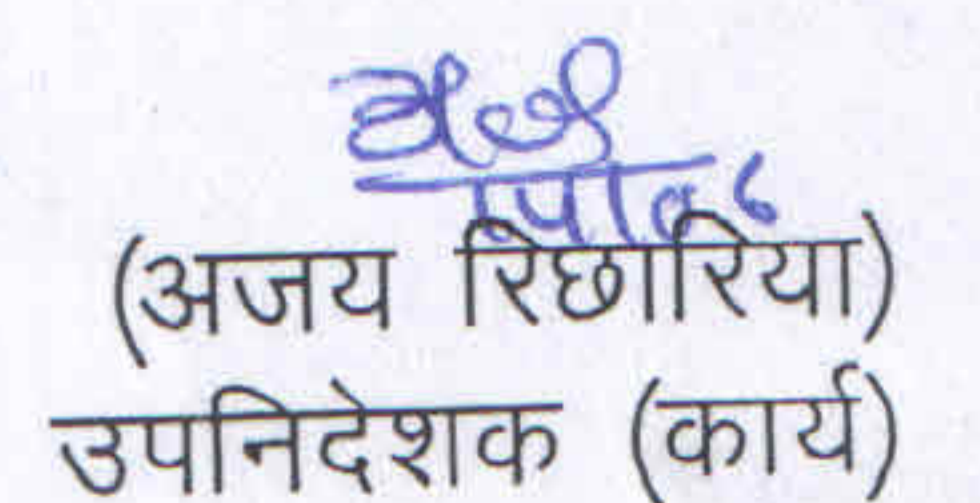 (अजय रिछारिया)
उपनिदेशक (कार्य)